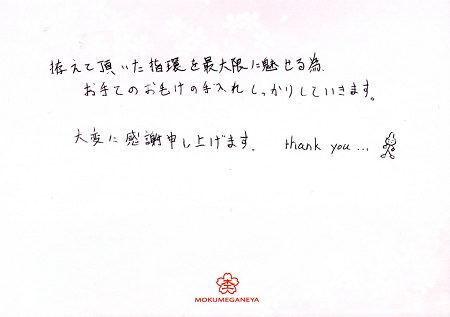 拵えて頂いた指環を最大限に魅せる為、
お手てのお毛けの手入れしっかりしていきます。
大変に感謝申し上げます。 thank you...
MOKUMEGANEYA